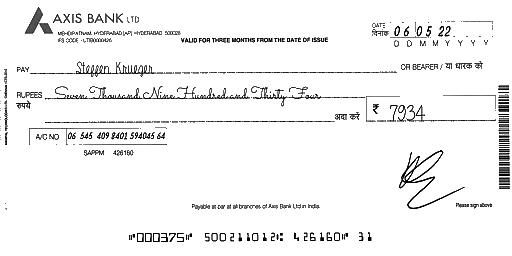 AXIS BANK LTD
MEHDIPATNAM, HYDERABAD [AP] - HYDERABAD 500028
IFS CODE - UTIB0000426
VALID FOR THREE MONTHS FROM THE DATE OF ISSUE
DATE
दिनांक 06 05 22
D D M M Y Y Y Y
PAY Steffen Krueger OR BEARER / या धारक को
RUPEES Seven Thousand Nine Hundred and Thirty Four
रुपये अदा करें ₹ 7934
A/C NO 06 545 409 8401 594045 64
SAPPM 426160
Payable at par at all branches of Axis Bank Ltd in India.
Please sign above
⑈000375⑈ 500211012⑆ 426160⑈ 31